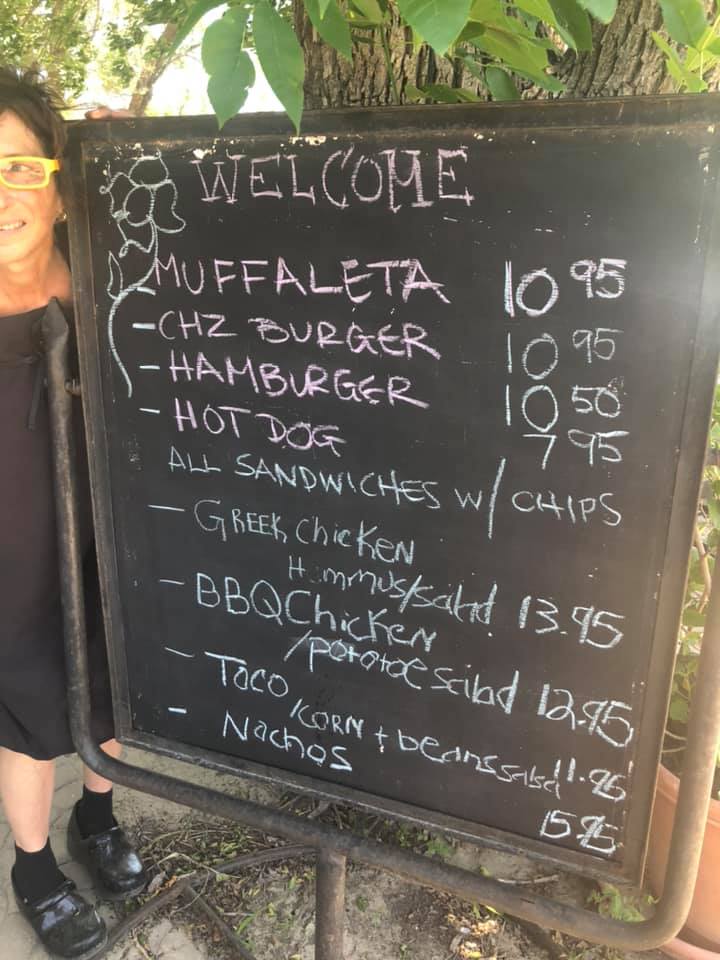 WELCOME
MUFFALETA 10 95
- CHZ BURGER 10 95
- HAMBURGER 10 50
- HOT DOG 7 95
ALL SANDWICHES W/ CHIPS
- GREEK Chicken
Hummus/salad 13.95
- BBQ Chicken
/potatoe salad 12.95
- Taco
/CORN + beans salad 11.95
- Nachos
15.95